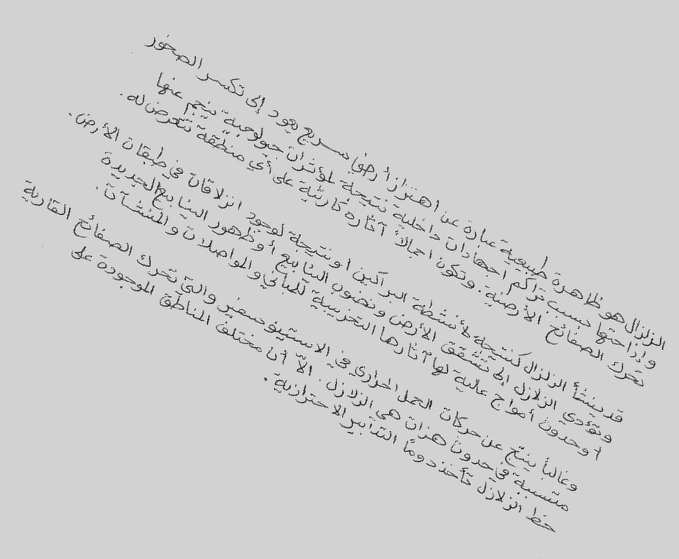 الزلزال هو ظاهرة طبيعية عبارة عن اهتزاز أرضي سريع يعود إلى تكسر الصخور
وإزاحتها بسبب تراكم اجهادات داخلية نتيجة لمؤثرات جيولوجية ينجم عنها
تحرك الصفائح الأرضية. وتكون اجمالاً آثاره كارثية على أي منطقة تتعرض له.
قد ينشأ الزلزال كنتيجة لأنشطة البراكين او نتيجة لوجود انزلاقات في طبقات الأرض.
وتؤدي الزلازل إلى تشقق الأرض ونضوب الينابيع أو ظهور الينابيع الجديدة
أو حدوث أمواج عالية لها آثارها التخريبية للمباني والمواصلات والمنشآت.
وغالباً ينتج عن حركات الحمل الحراري في الاستينوسفير والتي تحرك الصفائح القارية
متسببة في حدوث هزات هي الزلازل. الاّ أن مختلف المناطق الموجودة على
خط الزلازل تأخذ دوماً التدابير الاحترازية.